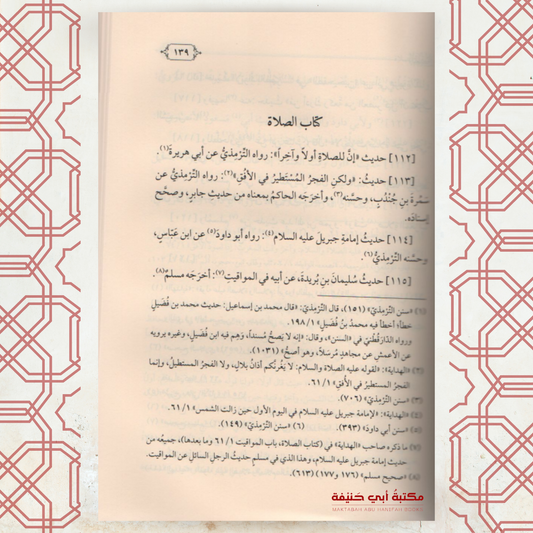 ١٣٩
كتاب الصلاة
[١١٢] حديث «إنَّ للصلاةِ أولاً وآخِراً»: رواه التِّرْمِذيُّ عن أبي هريرة(١).
[١١٣] حديثُ: «ولكنِ الفجرُ المُسْتَطيرُ في الأُفُقِ»(٢): رواه التِّرْمِذيُّ عن
سَمُرةَ بنِ جُنْدُبٍ، وحسَّنه(٣)، وأخرَجَه الحاكمُ بمعناه من حديثِ جابرٍ، وصحَّح
إسنادَه.
[١١٤] حديثُ إمامةِ جبريلَ عليه السلام(٤): رواه أبو داودَ(٥) عن ابنِ عبَّاسٍ،
وحسَّنه التِّرْمِذيُّ(٦).
[١١٥] حديثُ سُليمانَ بنِ بُريدةَ، عن أبيه في المواقيتِ(٧): أخرَجَه مسلم(٨).
(١) «سنن التِّرْمِذيِّ» (١٥١)، قال التِّرْمِذيّ: «قال محمد بن إسماعيل: حديث محمد بن فُضَيلٍ
خطأ؛ أخطأ فيه محمدُ بنُ فُضَيلٍ» ١/١٩٨.
ورواه الدّارَقُطْنيّ في «السنن»، وقال: «إنه لا يَصحُّ مُسنَداً، وَهِم فيه ابن فُضَيلٍ، وغيره يرويه
عن الأعمشِ عن مجاهدٍ مُرسَلاً، وهو أصحُّ» (١٠٣١).
(٢) «الهداية»: «لقوله عليه الصلاة والسلام: لا يَغُرَّنَّكم أذانُ بلالٍ، ولا الفجرُ المستطيلُ، وإنما
الفجرُ المستطيرُ في الأُفُقِ» ١/٦١.
(٣) «سنن التِّرْمِذيِّ» (٧٠٦).
(٤) «الهداية»: «لإمامة جبريل عليه السلام في اليوم الأول حين زالت الشمس» ١/٦١.
(٥) «سنن أبي داود» (٣٩٣). (٦) «سنن التِّرْمِذيِّ» (١٤٩).
(٧) ما ذكره صاحب «الهداية» في (كتاب الصلاة، باب المواقيت ٦١/١ وما بعدها)، جميعُه من
حديث إمامة جبريل عليه السلام، وهذا الذي في مسلمٍ حديثُ الرجلِ السائلِ عن المواقيت.
(٨) «صحيح مسلم» (١٧٦ و١٧٧) (٦١٣).
مكتبة أبي حنيفة
MAKTABAH ABU HANIFAH BOOKS